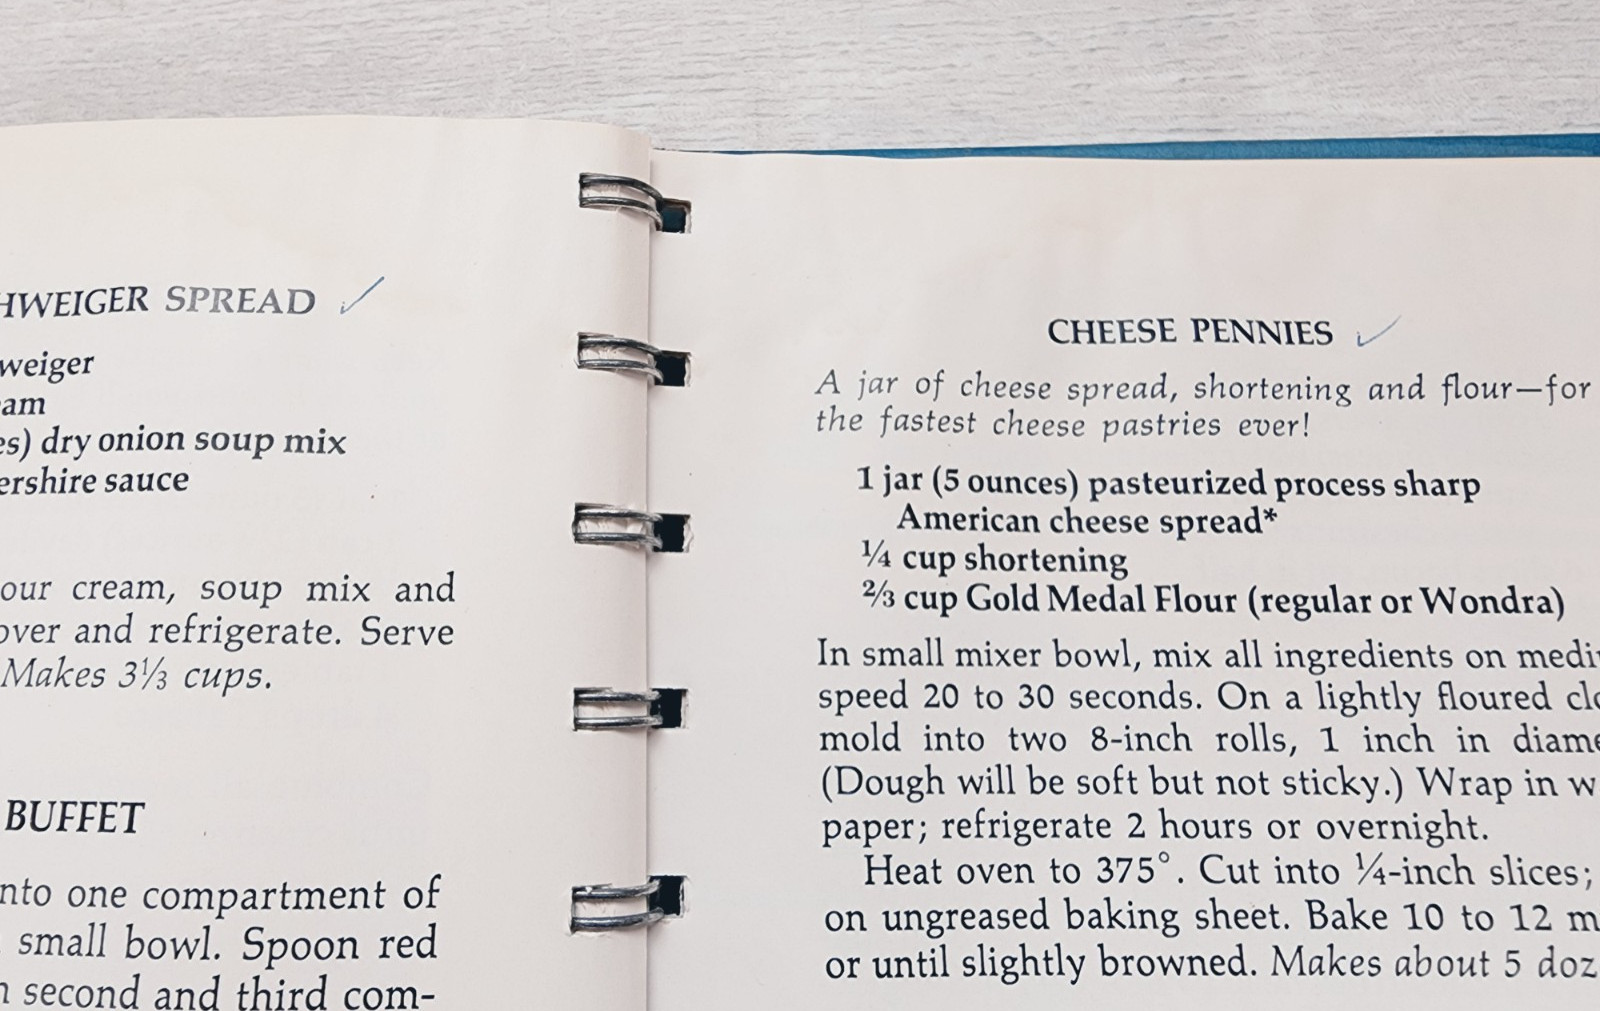 HWEIGER SPREAD
weiger
am
es) dry onion soup mix
ershire sauce
our cream, soup mix and
over and refrigerate. Serve
Makes 3⅓ cups.
BUFFET
nto one compartment of
small bowl. Spoon red
n second and third com-
CHEESE PENNIES
A jar of cheese spread, shortening and flour—for
the fastest cheese pastries ever!
1 jar (5 ounces) pasteurized process sharp
American cheese spread*
¼ cup shortening
⅔ cup Gold Medal Flour (regular or Wondra)
In small mixer bowl, mix all ingredients on medi
speed 20 to 30 seconds. On a lightly floured clo
mold into two 8-inch rolls, 1 inch in diame
(Dough will be soft but not sticky.) Wrap in w
paper; refrigerate 2 hours or overnight.
Heat oven to 375°. Cut into ¼-inch slices;
on ungreased baking sheet. Bake 10 to 12 m
or until slightly browned. Makes about 5 doz